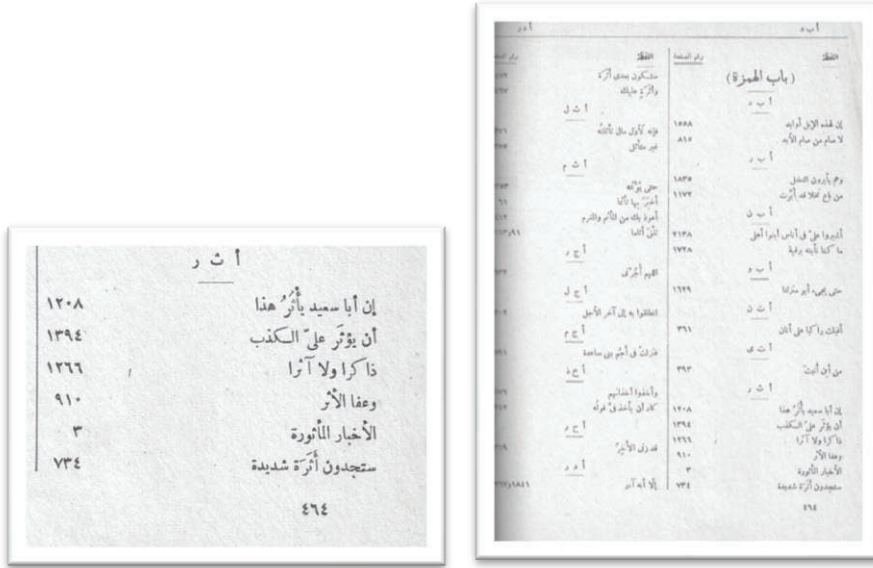 أ ث ر
إن أبا سعيد يأثُرُ هذا ١٢٠٨
أن يؤثَر علىّ الكذب ١٣٩٤
ذاكرا ولا آثرا ١٢٦٦
وعفا الأثر ٩١٠
الأخبار المأثورة ٣
ستجدون أثَرَة شديدة ٧٣٤
٤٦٤
أ ب د
اللفظ رقم الصفحة
(باب الهمزة)
أ ب د
إن لهذه الإبل أوابد ١٥٥٨
لا صام من صام الأبد ٨١٥
أ ب ر
وهم يأبرون النخل ١٨٣٥
من باع نخلا قد أبّرت ١١٧٢
أ ب ن
أشيروا علىّ فى أناس أبنوا أهلى ٢١٣٨
ما كنا نأبنه برقية ١٧٢٨
أ ب و
حتى يجىء أبو منزلنا ١٦٢٩
أ ت ن
أقبلت راكبا على أتان ٣٦١
أ ت ى
من أين أتيت ٣٩٣
أ ث ر
إن أبا سعيد يأثُرُ هذا ١٢٠٨
أن يؤثَر علىّ الكذب ١٣٩٤
ذاكرا ولا آثرا ١٢٦٦
وعفا الأثر ٩١٠
الأخبار المأثورة ٣
ستجدون أثَرَة شديدة ٧٣٤
٤٦٤
اللفظ
ستكون بعدى أثرة
وأثرة عليك
أ ث ل
فإنه لأول مال تأثلته
غير متأثل
أ ث م
حتى يؤثمه
أخبر بها تأثما
أعوذ بك من المأثم والمغرم
تلق أثاما
أ ج ر
اللهم أجرنى
أ ج ل
انطلقوا به إلى آخر الأجل
أ ج م
فنزلت فى أجم بنى ساعدة
أ خ ذ
وأخذوا أخذاتهم
كاد أن يأخذ فىّ قوله
أ خ ر